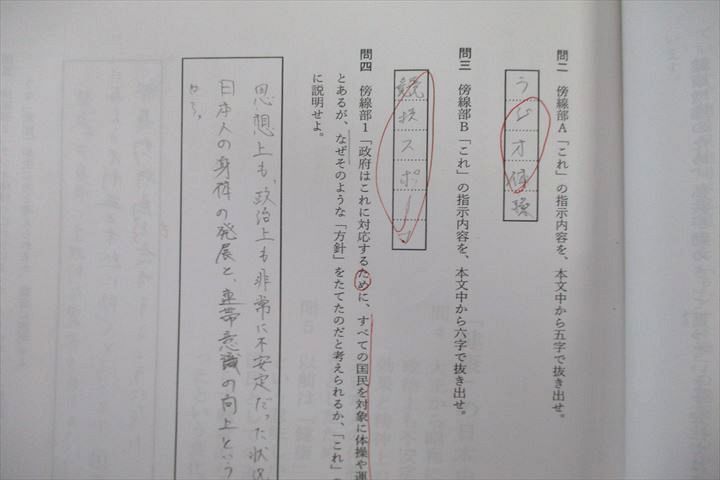 問二　傍線部A「これ」の指示内容を、本文中から五字で抜き出せ。
ラジオ体操
問三　傍線部B「これ」の指示内容を、本文中から六字で抜き出せ。
競技スポーツ
問四　傍線部1「政府はこれに対応するために、すべての国民を対象に体操や運
とあるが、なぜそのような「方針」をたてたのだと考えられるか、「これ」
に説明せよ。
思想上も、政治上も非常に不安定だった状況
日本人の身体の発展と、連帯意識の向上という